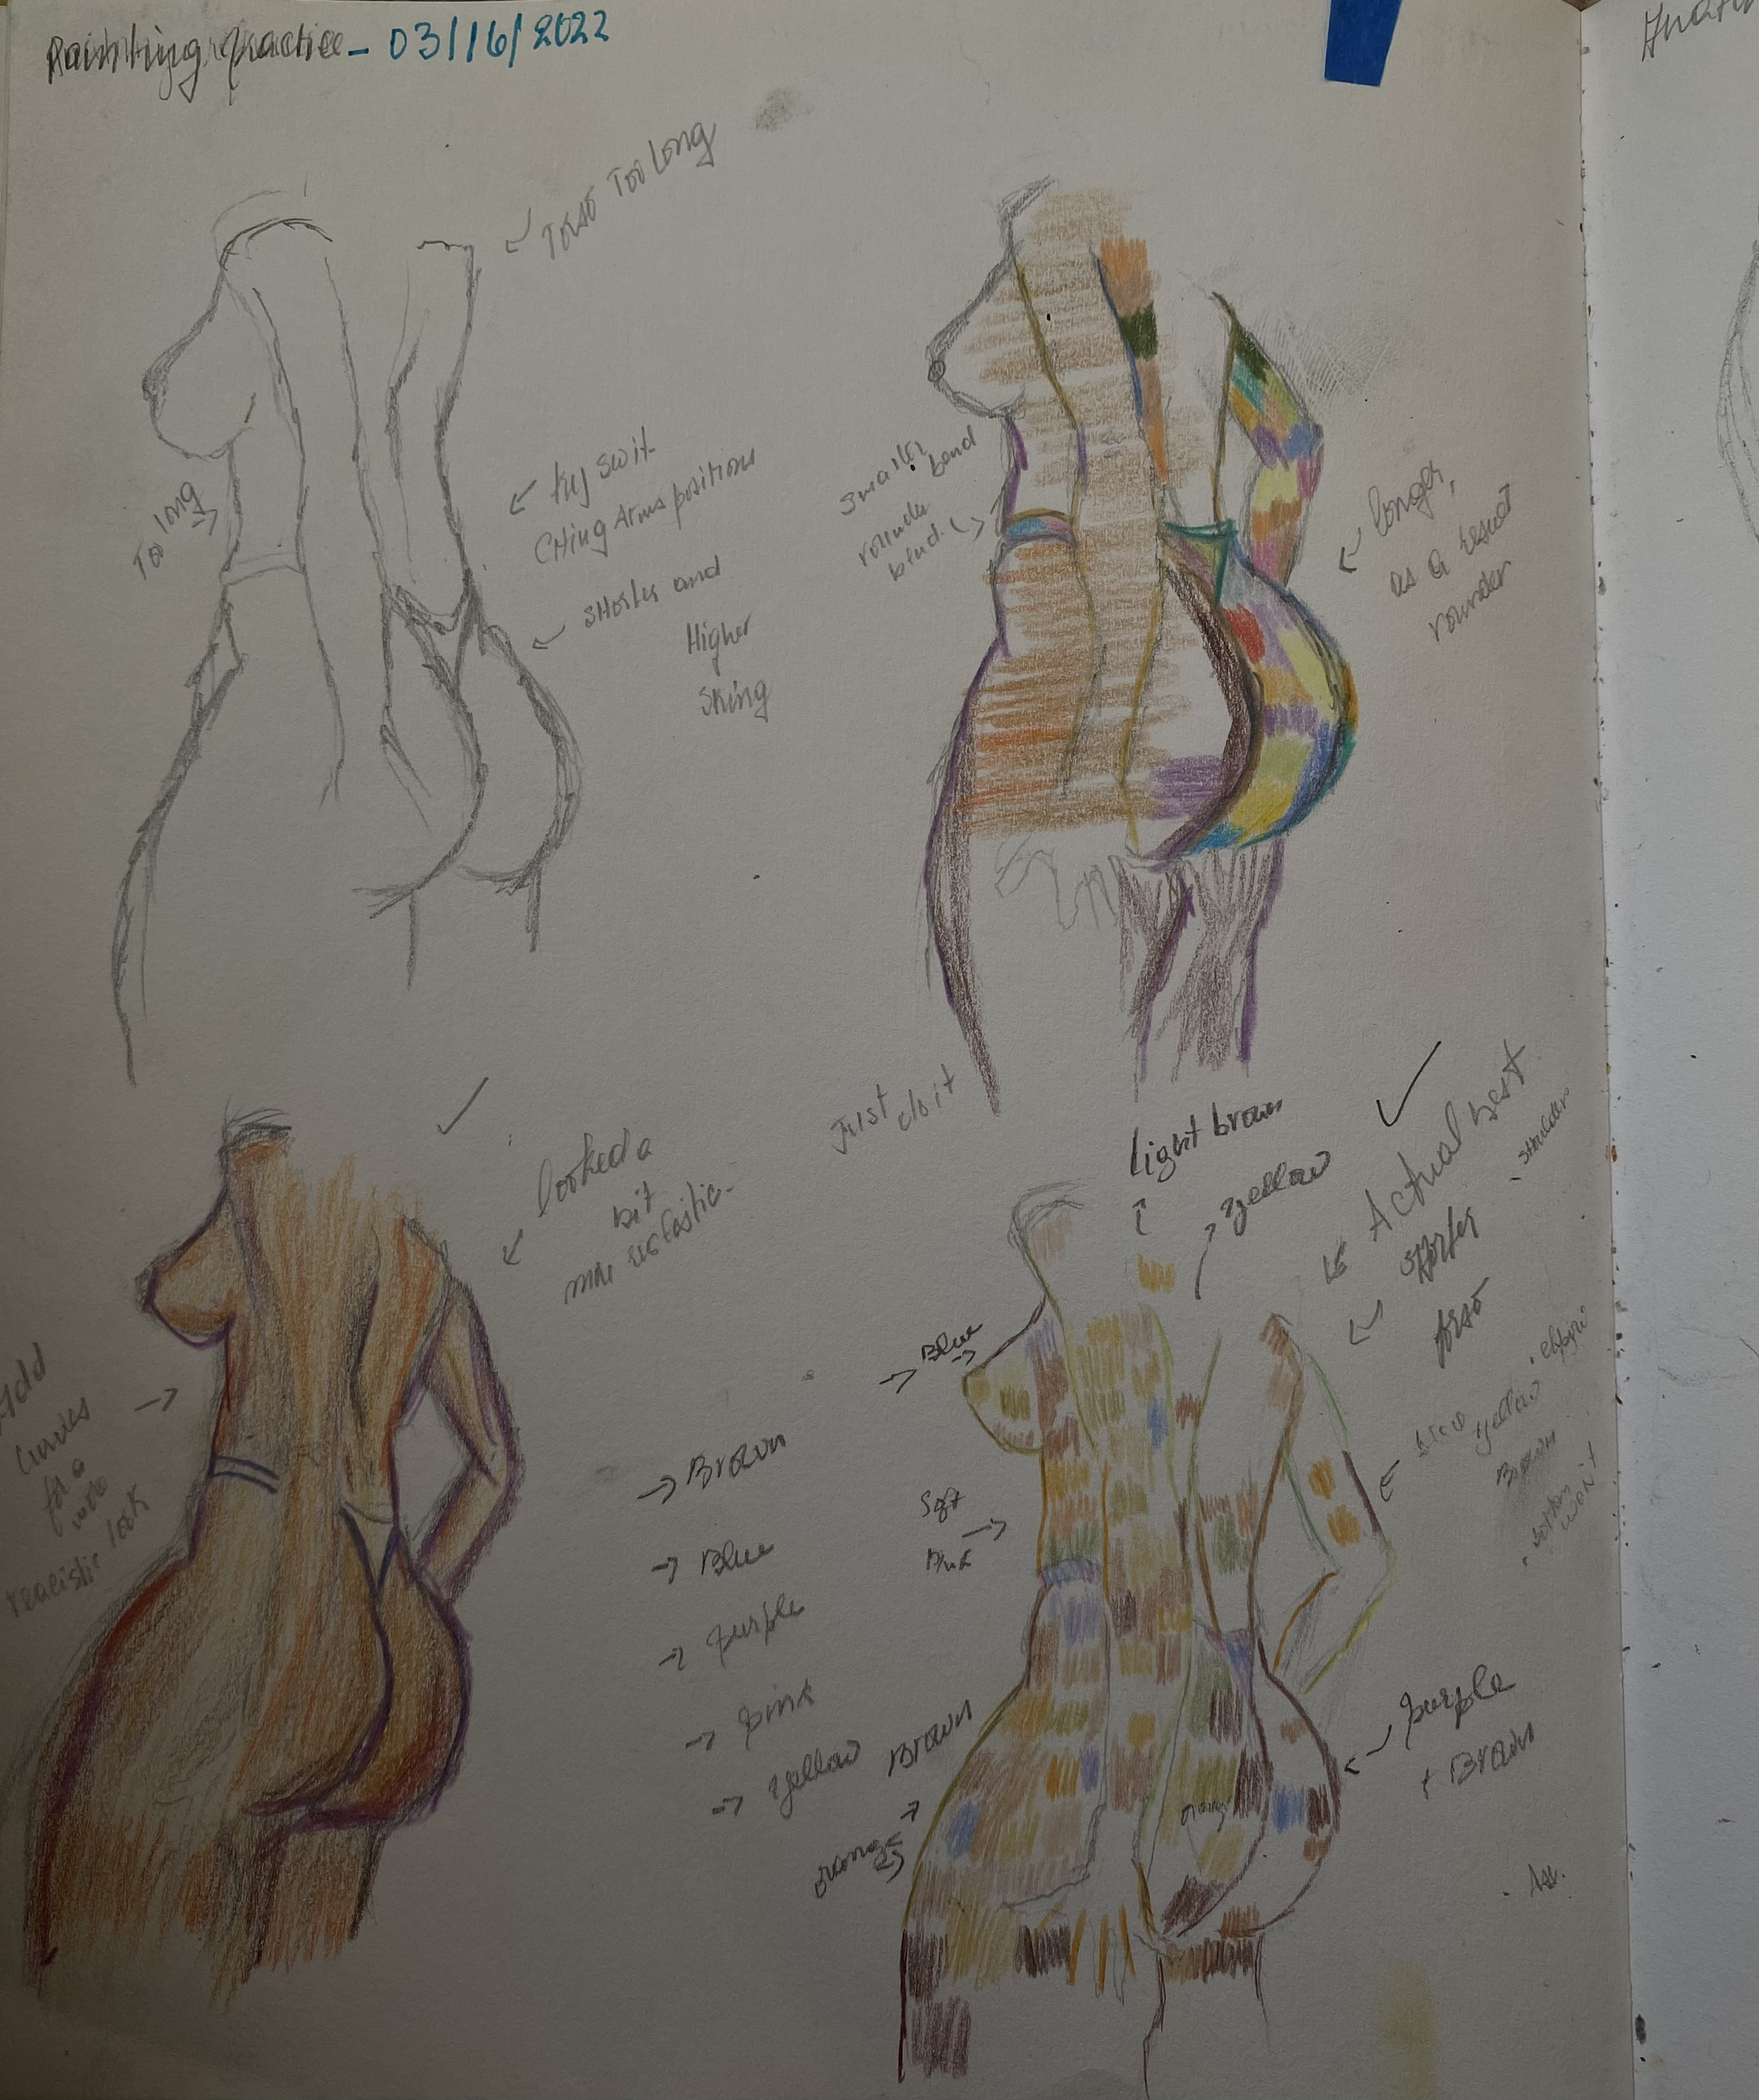 Painting Practice - 03/16/2022
Torso Too Long
Too long
try swit-
Ching Arms positions
SHorter and
Higher
String
Smaller
rounder bend
bind.
longer,
as a result
rounder
Just do it
looked a
bit
more realistic.
Add
Curves
for a
more
realistic look
Light brown
yellow
Actual best
shorter
torso
- shoulder
Blue
→ Brown
→ Blue
→ purple
→ pink
→ yellow
Soft
Pink
Brown
orange
yellow
Brown
bottom
won't
purple
+ Brown
orange